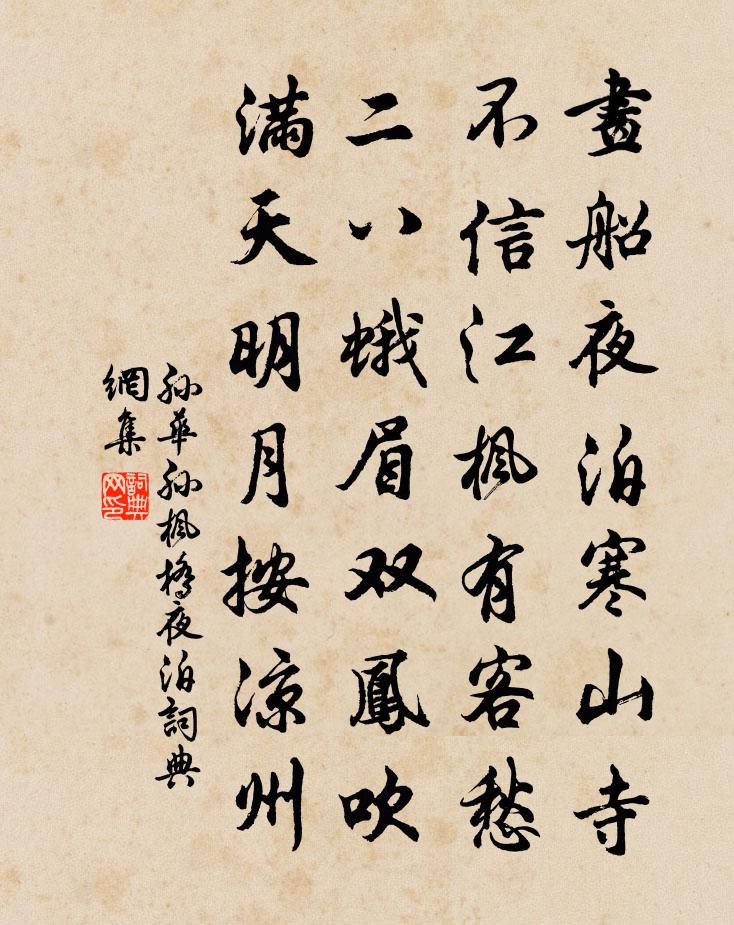 畫船夜泊寒山寺
不信江楓有客愁
二八蛾眉双鳳吹
滿天明月按涼州
孙華孙楓橋夜泊詞典
網集
詞典网印